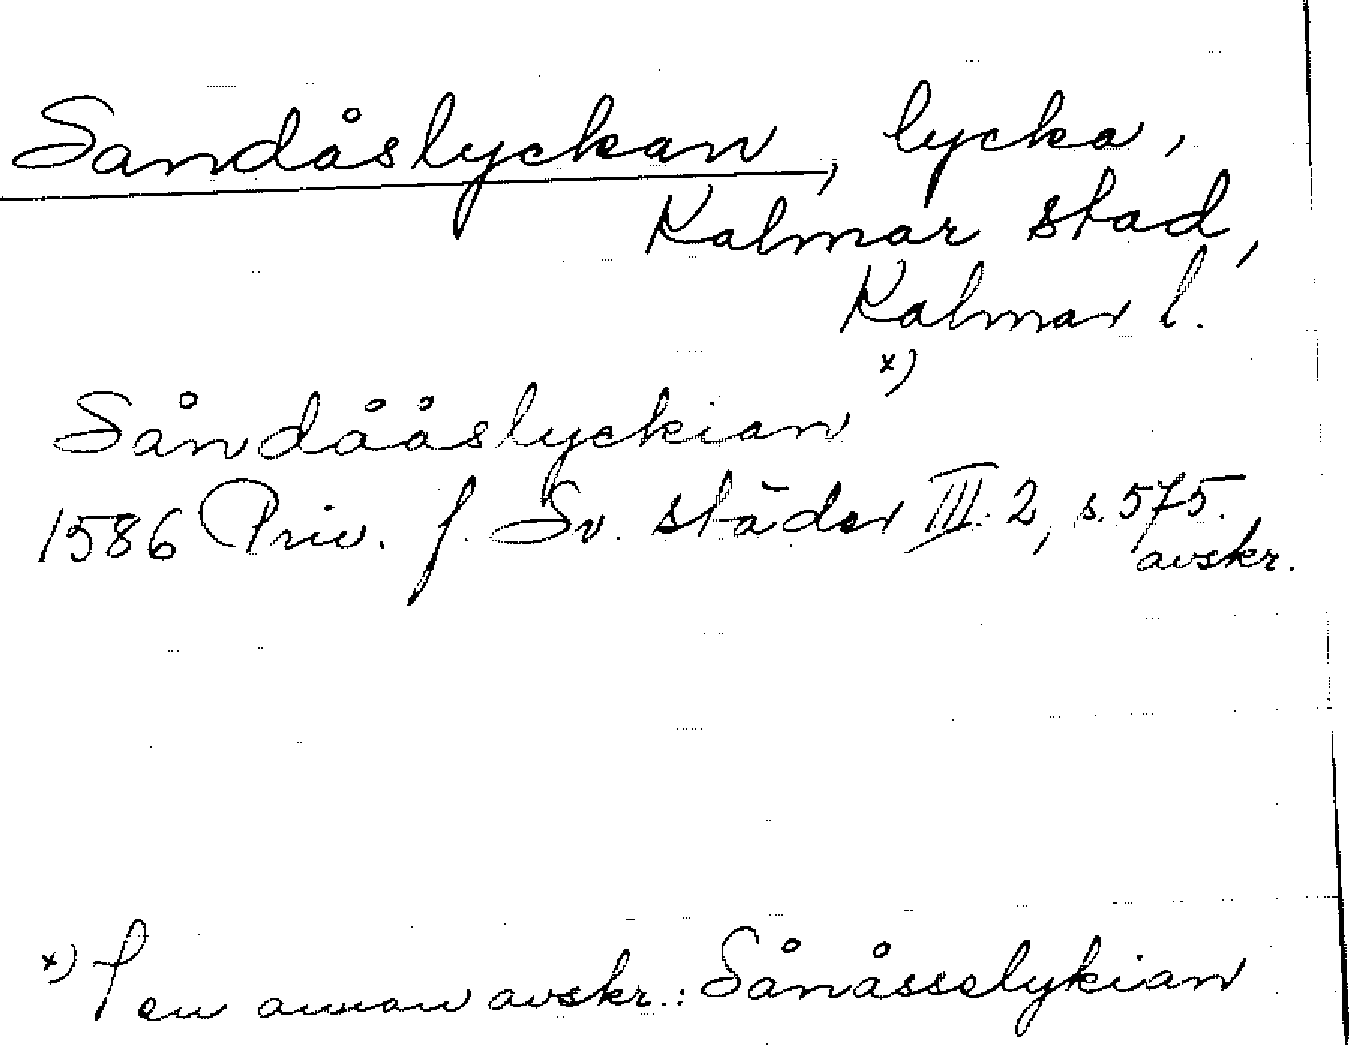 Sandåslyckan, lycka,
Kalmar stad,
Kalmar l.
Såndååslyckian x)
1586 Priv. f. Sv. städer III. 2, s. 575.
avskr.
x) I en annan avskr.: Sånåsselykian